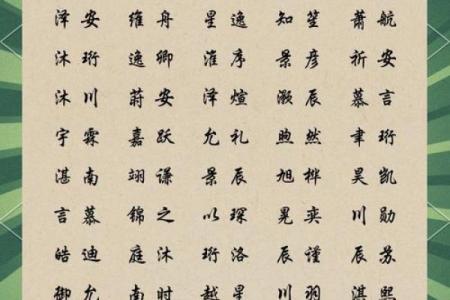 泽安 维舟 星逸 知笙 萧航
沐珩 逸卿 淮序 景彦 祈安
沐川 蔚安 泽煊 灏辰 慕言
宇霖 嘉跃 允礼 煦然 聿珩
湛南 翊谦 景辰 旭桦 昊凯
言慕 锦之 以琛 晃奕 川勋
皓迪 庭沐 珩洛 辰谨 辰苏
御允 南时 越星 川羽 淇熙